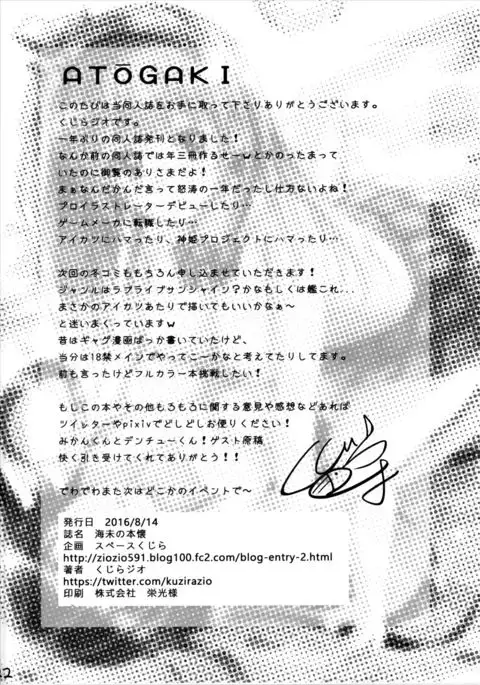 ATŌGAKI
このたびは当同人誌をお手に取って下さりありがとうございます。
くじらジオです。
一年ぶりの同人誌発刊となりました!
なんか前の同人誌では年三冊作るぜーwとかのったまって
いたのに御覧のありさまだよ!
まぁなんだかんだ言って怒涛の一年だったし仕方ないよね!
プロイラストレーターデビューしたり…
ゲームメーカに転職したり…
アイカツにハマったり、神姫プロジェクトにハマったり…
次回の冬コミももちろん申し込ませていただきます!
ジャンルはラブライブサンシャイン?かなもしくは艦これ...
まさかのアイカツあたりで描いてもいいかなぁ~
と迷いまくっていますw
昔はギャグ漫画ばっか書いていたけど、
当分は18禁メインでやってこーかなと考えてたりしてます。
前も言ったけどフルカラー本挑戦したい!
もしこの本やその他もろもろに関する意見や感想などあれば
ツイッターやpixivでどしどしお便りください!
みかんくんとデンチューくん!ゲスト原稿
快く引き受けてくれてありがとう!!
でわでわまた次はどこかのイベントで~
発行日 2016/8/14
誌名 海未の本懐
企画 スペースくじら
http://ziozio591.blog100.fc2.com/blog-entry-2.html
著者 くじらジオ
https://twitter.com/kuzirazio
印刷 株式会社 栄光様